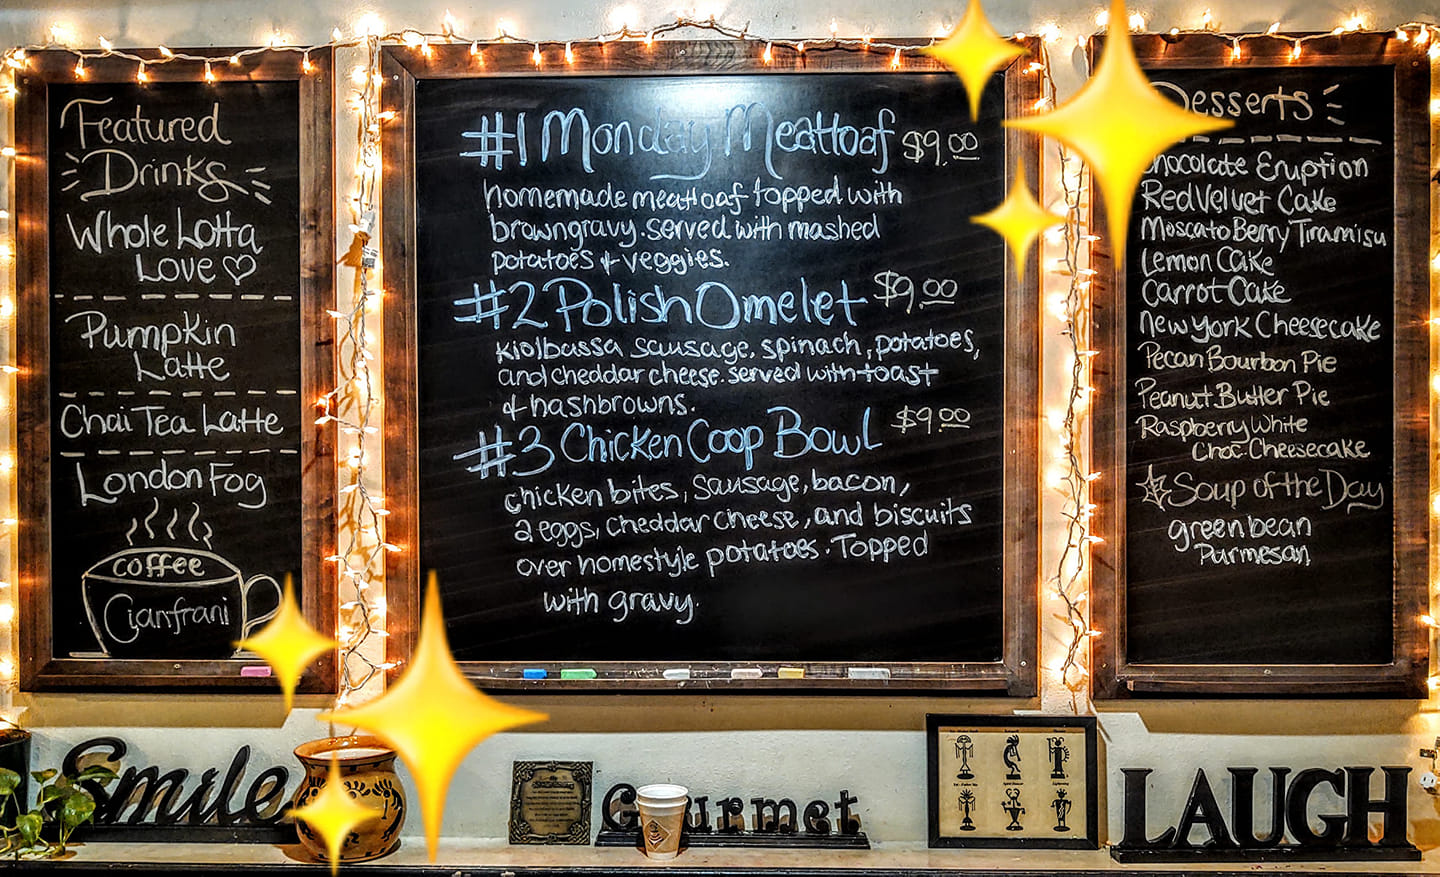 Featured
Drinks
Whole Lotta
Love
Pumpkin
Latte
Chai Tea Latte
London Fog
coffee
Cianfrani
#1 Monday Meatloaf $9.00
homemade meatloaf topped with
brown gravy. served with mashed
potatoes + veggies.
#2 Polish Omelet $9.00
kiolbassa sausage, spinach, potatoes,
and cheddar cheese. served with toast
& hashbrowns.
#3 Chicken Coop Bowl $9.00
chicken bites, sausage, bacon,
2 eggs, cheddar cheese, and biscuits
over homestyle potatoes. Topped
with gravy.
Desserts
Chocolate Eruption
Red Velvet Cake
Moscato Berry Tiramisu
Lemon Cake
Carrot Cake
New York Cheesecake
Pecan Bourbon Pie
Peanut Butter Pie
Raspberry White
Choc. Cheesecake
Soup of the Day
green bean
Purmesan
Smile
Gourmet
LAUGH